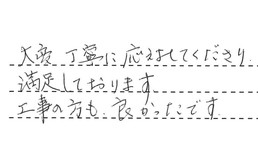 大変丁寧に応対してくださり
満足しております
工事の方も、良かったです。